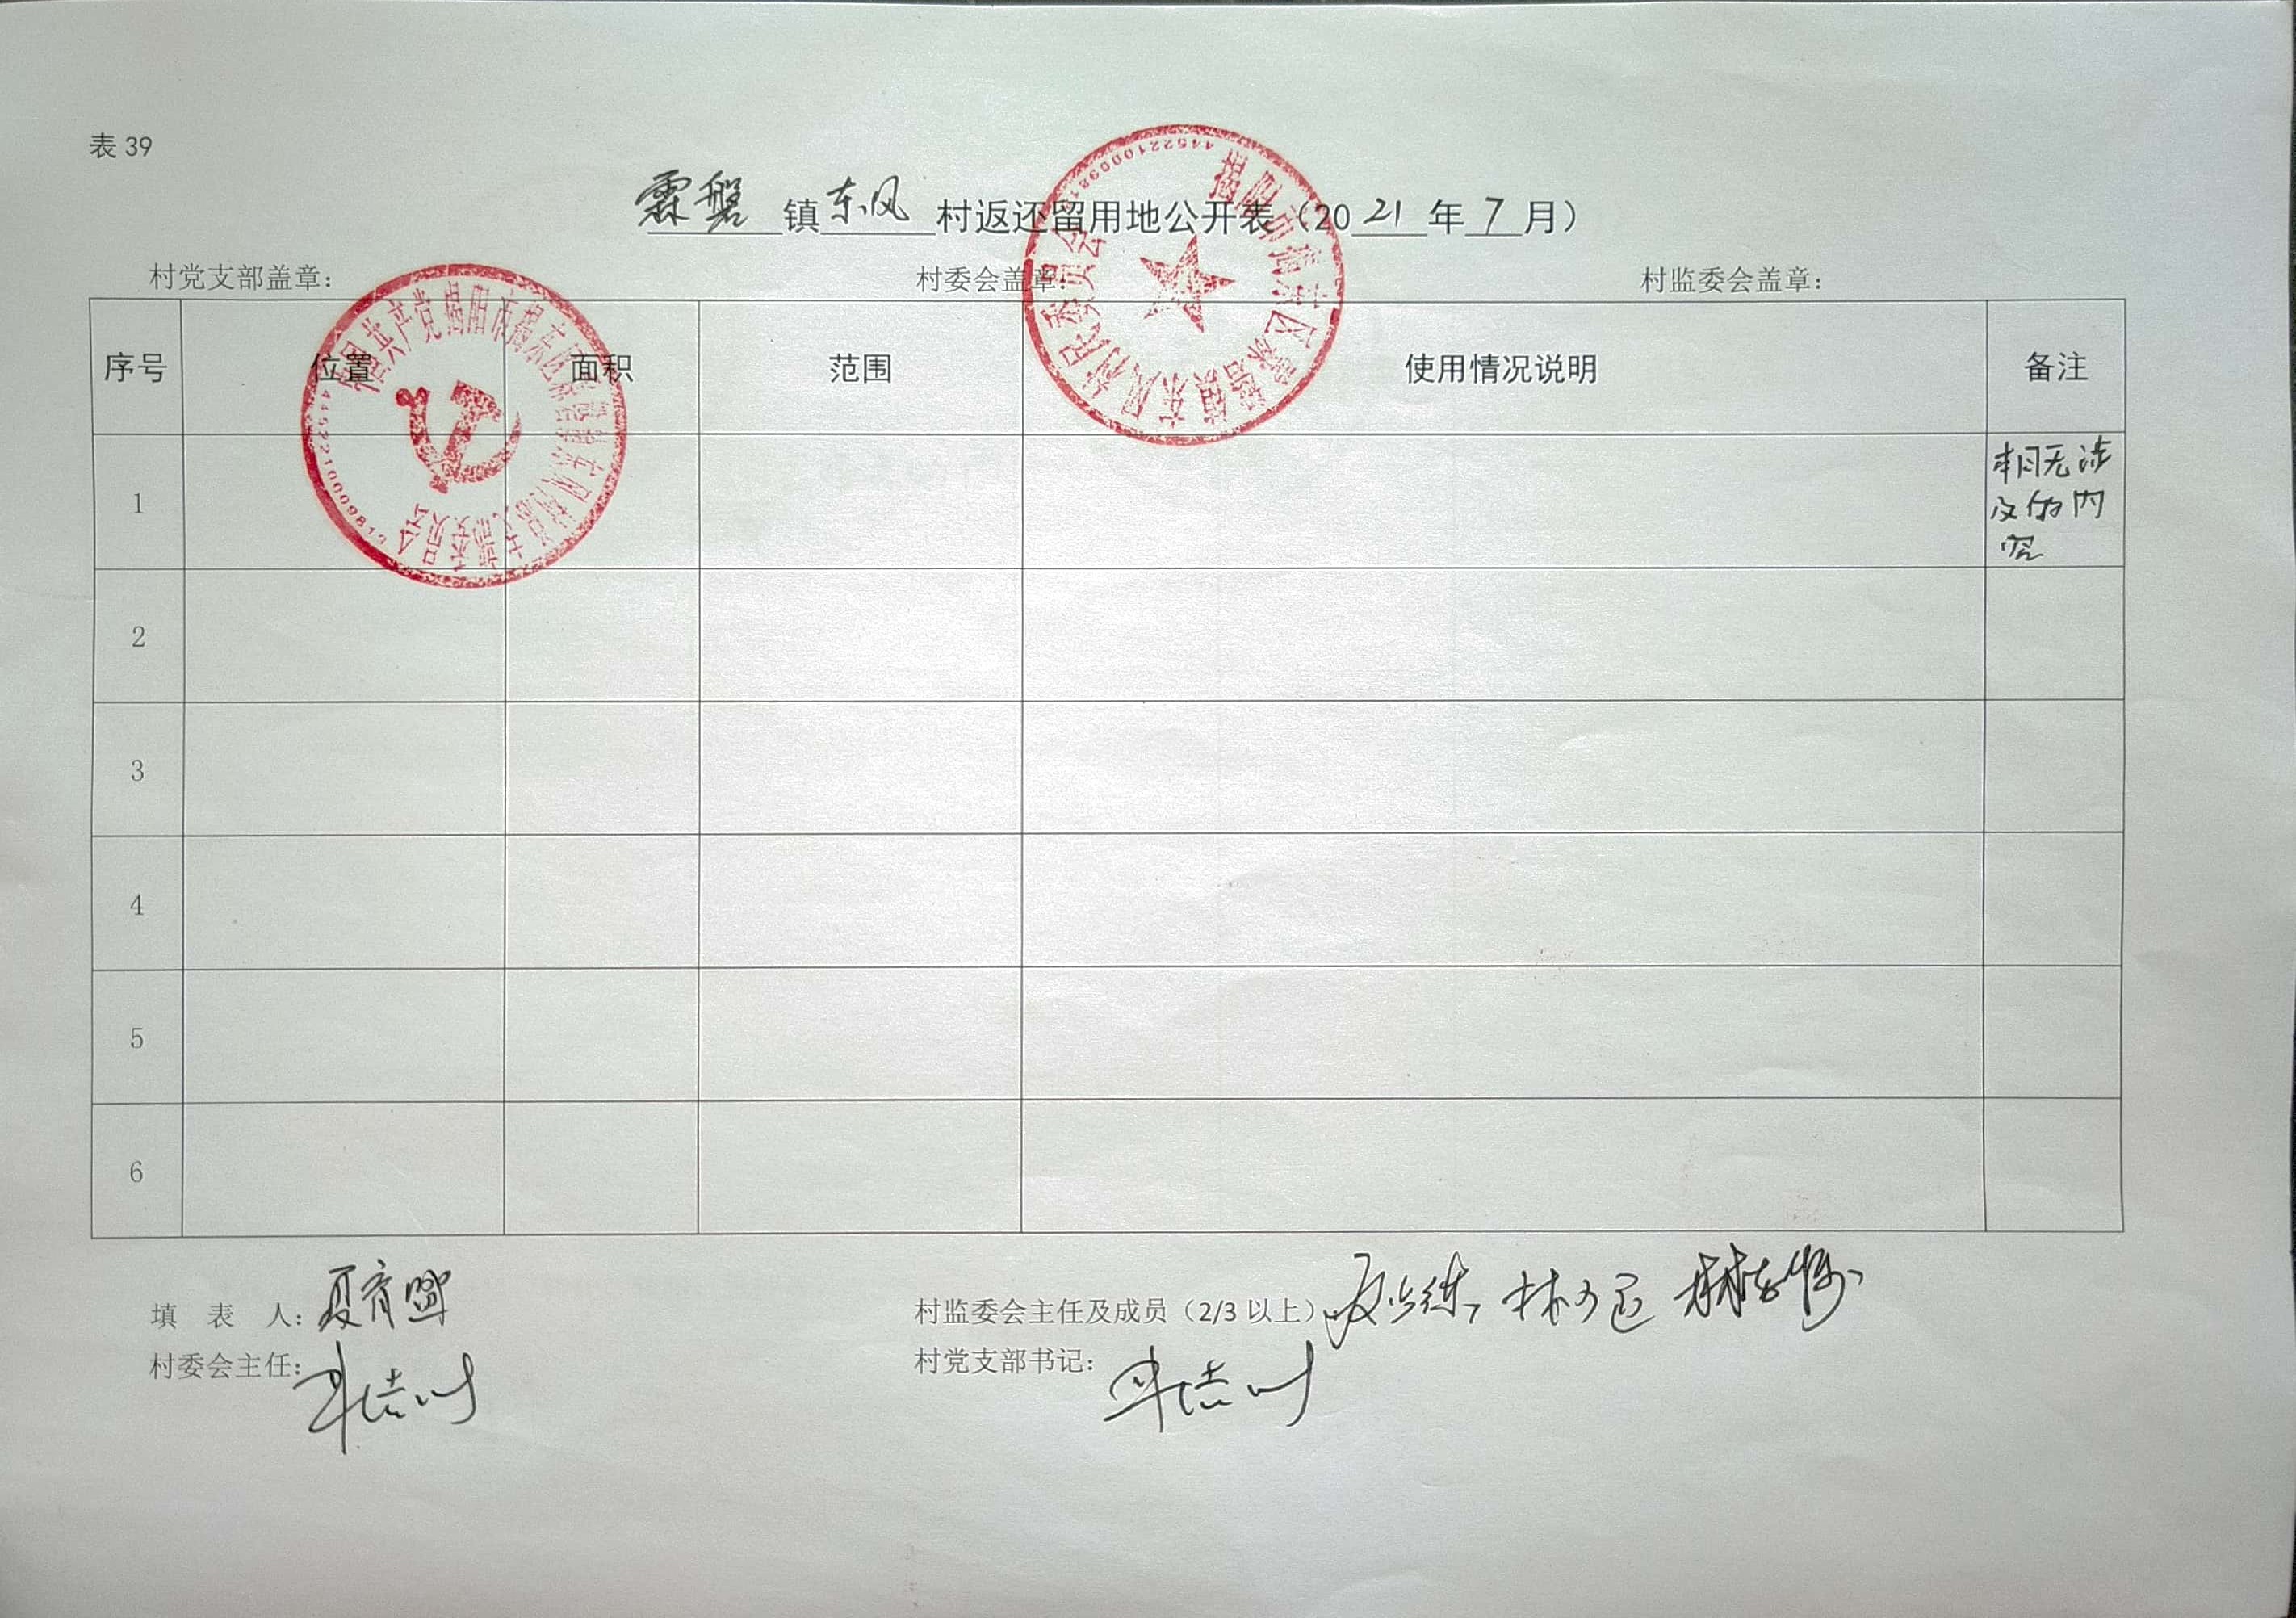 表 39
霖磐镇东风村返还留用地公开表（2021年7月）
村党支部盖章： 村委会盖章： 村监委会盖章：
中国共产党揭阳市揭东区霖磐镇东风村总支部委员会
4452210009813
揭阳市揭东区霖磐镇东风村民委员会
序号 位置 面积 范围 使用情况说明 备注
1 本月无涉
及的内
容
2
3
4
5
6
填 表 人： 夏育 村监委会主任及成员（2/3 以上）
村委会主任： 村党支部书记：